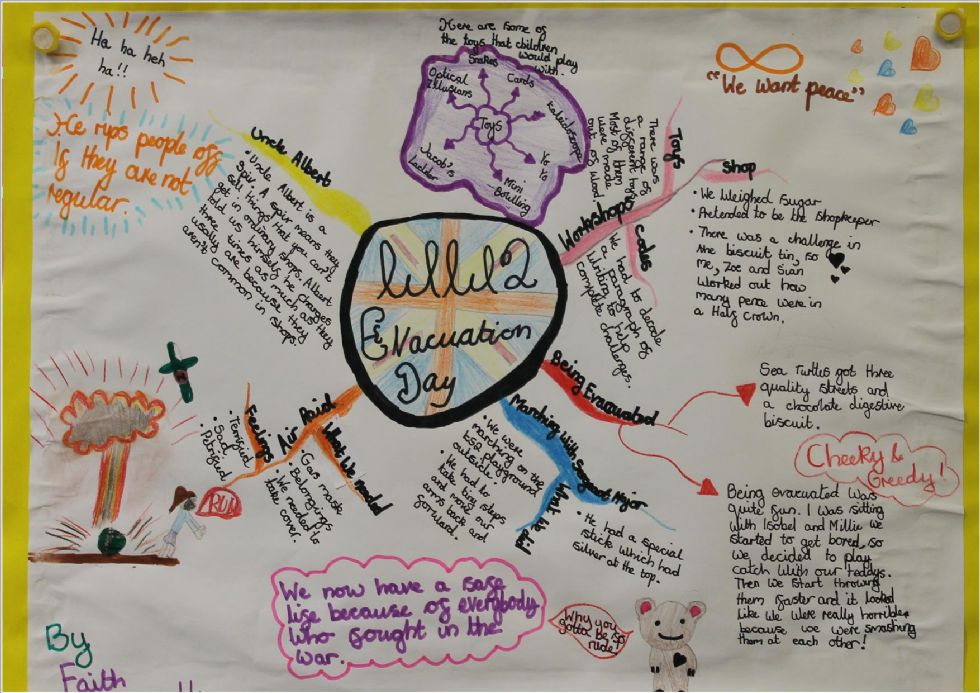 Ha ha heh
ha!!
He rips people off
If they are not
regular.
Uncle Albert
• Uncle Albert is a
Spiv. A spiv means they
sell things that you can't
get in ordinary shops. Albert
told us himself he charges
three times as much as they
usually are because they
aren't common in shops!
Here are some of
the toys that children
would play
with.
Toys
Snakes
Cards
Kaleidoscope
Yo
Yo
Mini
Bowling
Jacob's
Ladder
Optical
Illusions
"We want peace"
WW2
Evacuation
Day
Workshops
Toys
There was
a range of
different toys.
Most of them
were made
out of wood.
Codes
We had to decode
a paragraph of
writing to help
complete challenges.
Shop
• We Weighed Sugar
• Pretended to be the Shopkeeper
• There was a challenge in
the biscuit tin, so
me, Zoe and Sian
Worked out how
many pence were in
a Half Crown.
Being Evacuated
Sea Turtles got three
quality streets and
a chocolate digestive
biscuit.
Cheeky &
Greedy!
Being evacuated was
quite fun. I was sitting
with Isobel and Millie we
started to get bored, so
we decided to play
catch with our teddys.
Then we start throwing
them faster and it looked
like we were really horrible
because we were smashing
them at each other!
Marching with Sergeant Major
• We were
marching on the
KS2 playground
outside
• We had to
take tiny steps
and move our
arms back and
forward.
What we did
• He had a special
stick which had
silver at the top.
Air Raid
Feelings
• Terrified
• Sad
• Petrified
What We Need
• Gas mask
• Belongings
We needed to
take cover.
RUN
We now have a safe
life because of everybody
who fought in the
war.
Why you
gotta be so
rude?
By
Faith